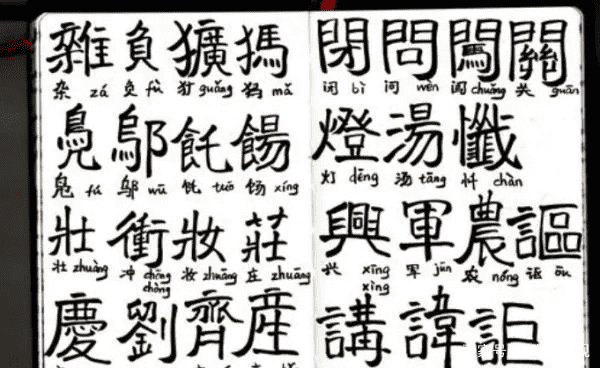 雜 負 獷 獁
杂 zá 负 fù 犷 guǎng 犸 mǎ
鳧 鄔 飥 餳
凫 fú 邬 wū 饦 tuō 饧 xíng
壯 衝 妝 莊
壮 zhuàng 冲 chōng chòng 妆 zhuāng 庄 zhuāng
慶 劉 齊 産
閉 問 闖 關
闭 bì 问 wèn 闯 chuǎng 关 guān
燈 湯 懺
灯 dēng 汤 tāng 忏 chàn
興 軍 農 謳
兴 xīng xìng 军 jūn 农 nóng 讴 ōu
講 諱 詎